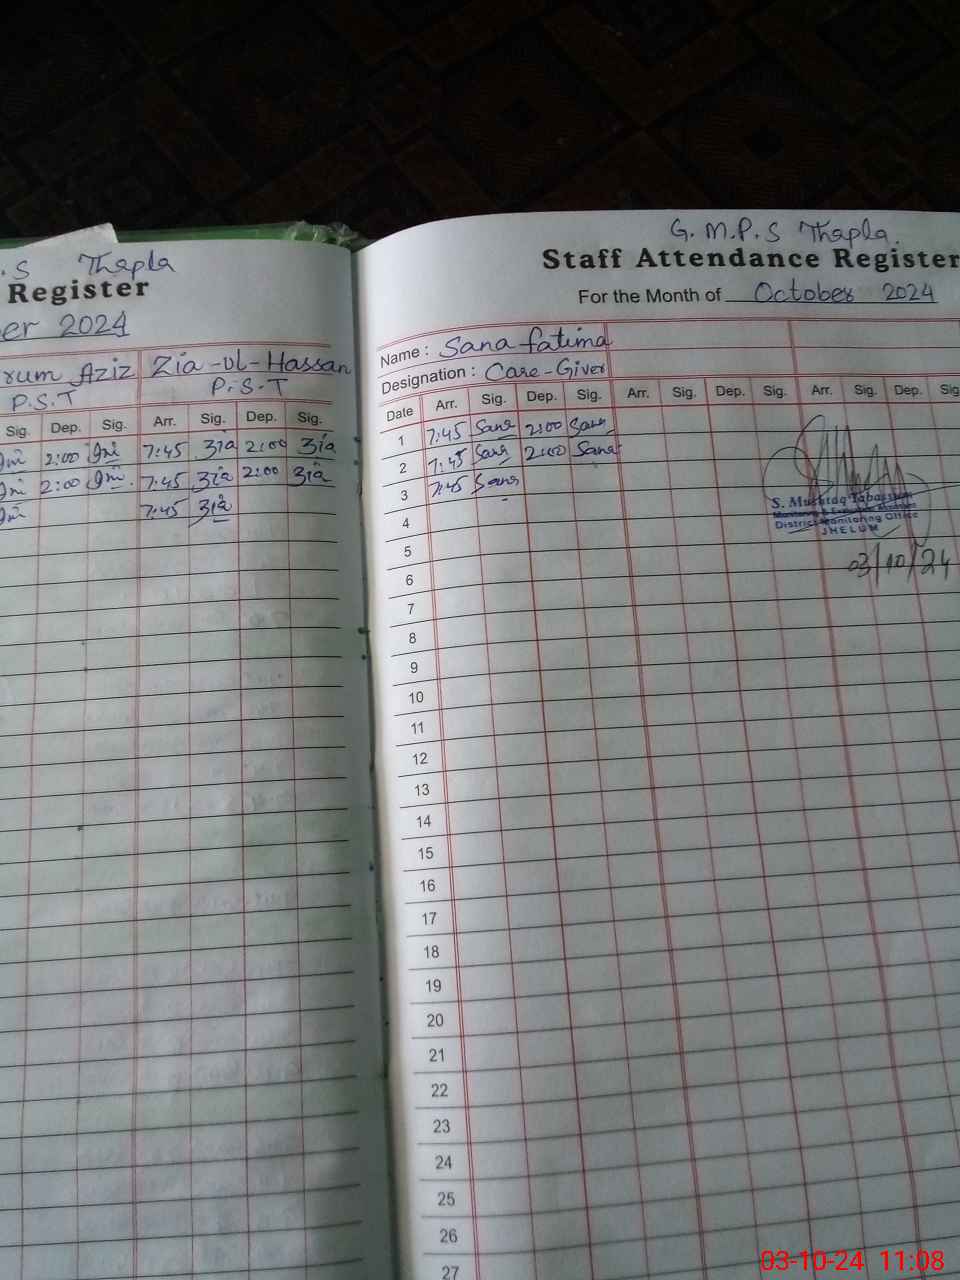 .S Thapla
Register
er 2024
rum Aziz Zia-ul-Hassan
P.S.T P.S.T
Sig. Dep. Sig. Arr. Sig. Dep. Sig.
2:00 7:45 Zia 2:00 Zia
2:00 7:45 Zia 2:00 Zia
7:45 Zia
G.M.P.S Thapla.
Staff Attendance Register
For the Month of October 2024
Name : Sana fatima
Designation : Care-Giver
Date Arr. Sig. Dep. Sig. Arr. Sig. Dep. Sig. Arr. Sig. Dep. Sig
1 7:45 Sana 2:00 Sana
2 7:45 Sana 2:00 Sana
3 7:45 Sana
4
5
6
7
8
9
10
11
12
13
14
15
16
17
18
19
20
21
22
23
24
25
26
27
S. Mushtaq Tabassum
Monitoring & Evaluation Assistant
District Monitoring Office
JHELUM
03/10/24
03-10-24 11:08